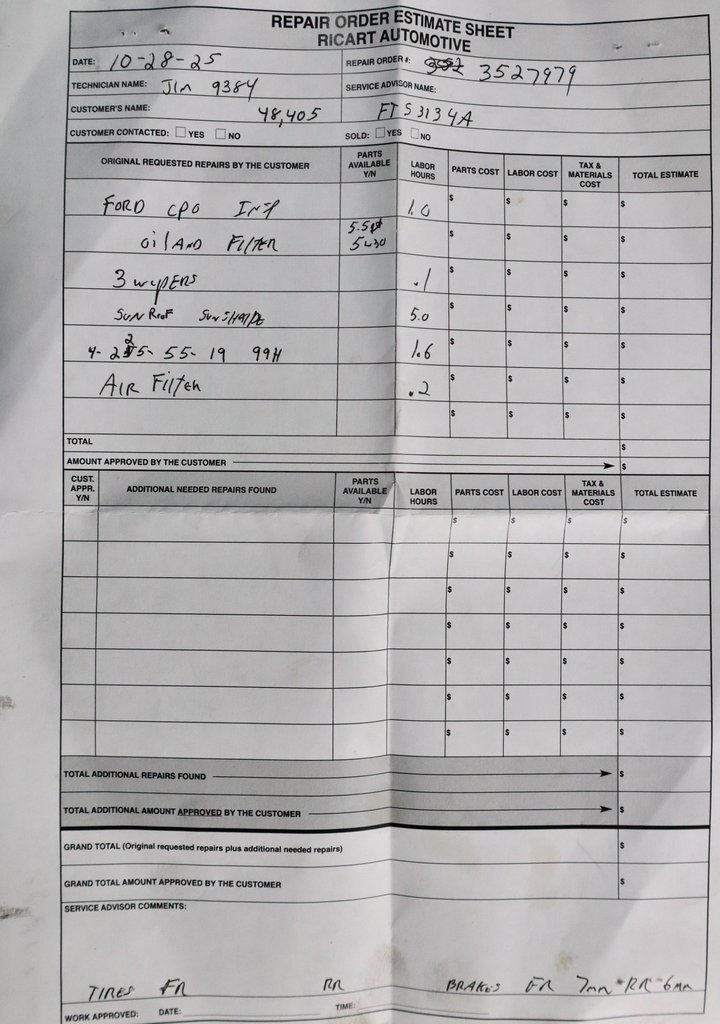 REPAIR ORDER ESTIMATE SHEET
RICART AUTOMOTIVE
DATE: 10-28-25
REPAIR ORDER #: 3527979
TECHNICIAN NAME: Jim 9384
SERVICE ADVISOR NAME:
CUSTOMER'S NAME: 48,405 FTS3134A
CUSTOMER CONTACTED: YES NO SOLD: YES NO
ORIGINAL REQUESTED REPAIRS BY THE CUSTOMER PARTS AVAILABLE Y/N LABOR HOURS PARTS COST LABOR COST TAX & MATERIALS COST TOTAL ESTIMATE
FORD CPO INSP 1.0 $ $ $ $
OIL AND FILTER 5.5 5W30 $ $ $ $
3 WIPERS .1 $ $ $ $
SUNROOF SUNSHADE 5.0 $ $ $ $
4- 225- 55- 19 99H 1.6 $ $ $ $
AIR FILTER .2 $ $ $ $
$ $ $ $
TOTAL $
AMOUNT APPROVED BY THE CUSTOMER $
CUST. APPR. Y/N ADDITIONAL NEEDED REPAIRS FOUND PARTS AVAILABLE Y/N LABOR HOURS PARTS COST LABOR COST TAX & MATERIALS COST TOTAL ESTIMATE
$ $ $ $
$ $ $ $
$ $ $ $
$ $ $ $
$ $ $ $
$ $ $ $
$ $ $ $
TOTAL ADDITIONAL REPAIRS FOUND $
TOTAL ADDITIONAL AMOUNT APPROVED BY THE CUSTOMER $
GRAND TOTAL (Original requested repairs plus additional needed repairs) $
GRAND TOTAL AMOUNT APPROVED BY THE CUSTOMER $
SERVICE ADVISOR COMMENTS:
TIRES FR RR BRAKES FR 7mm RR-6mm
WORK APPROVED: DATE: TIME: